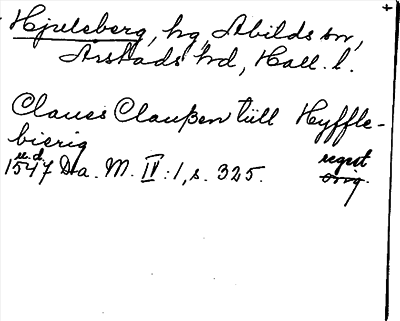 +
Hjulsberg, hg, Abilds sn,
Årstads hd, Hall. l.
Clauss Claußen tüll Hyffle-
bierig
u.d. regest
1547 Da. M. IV:1, s. 325. orig.